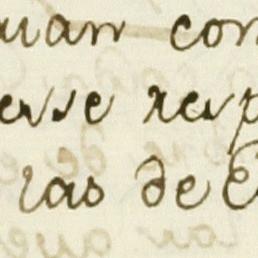 uan con
erse resp
las de E